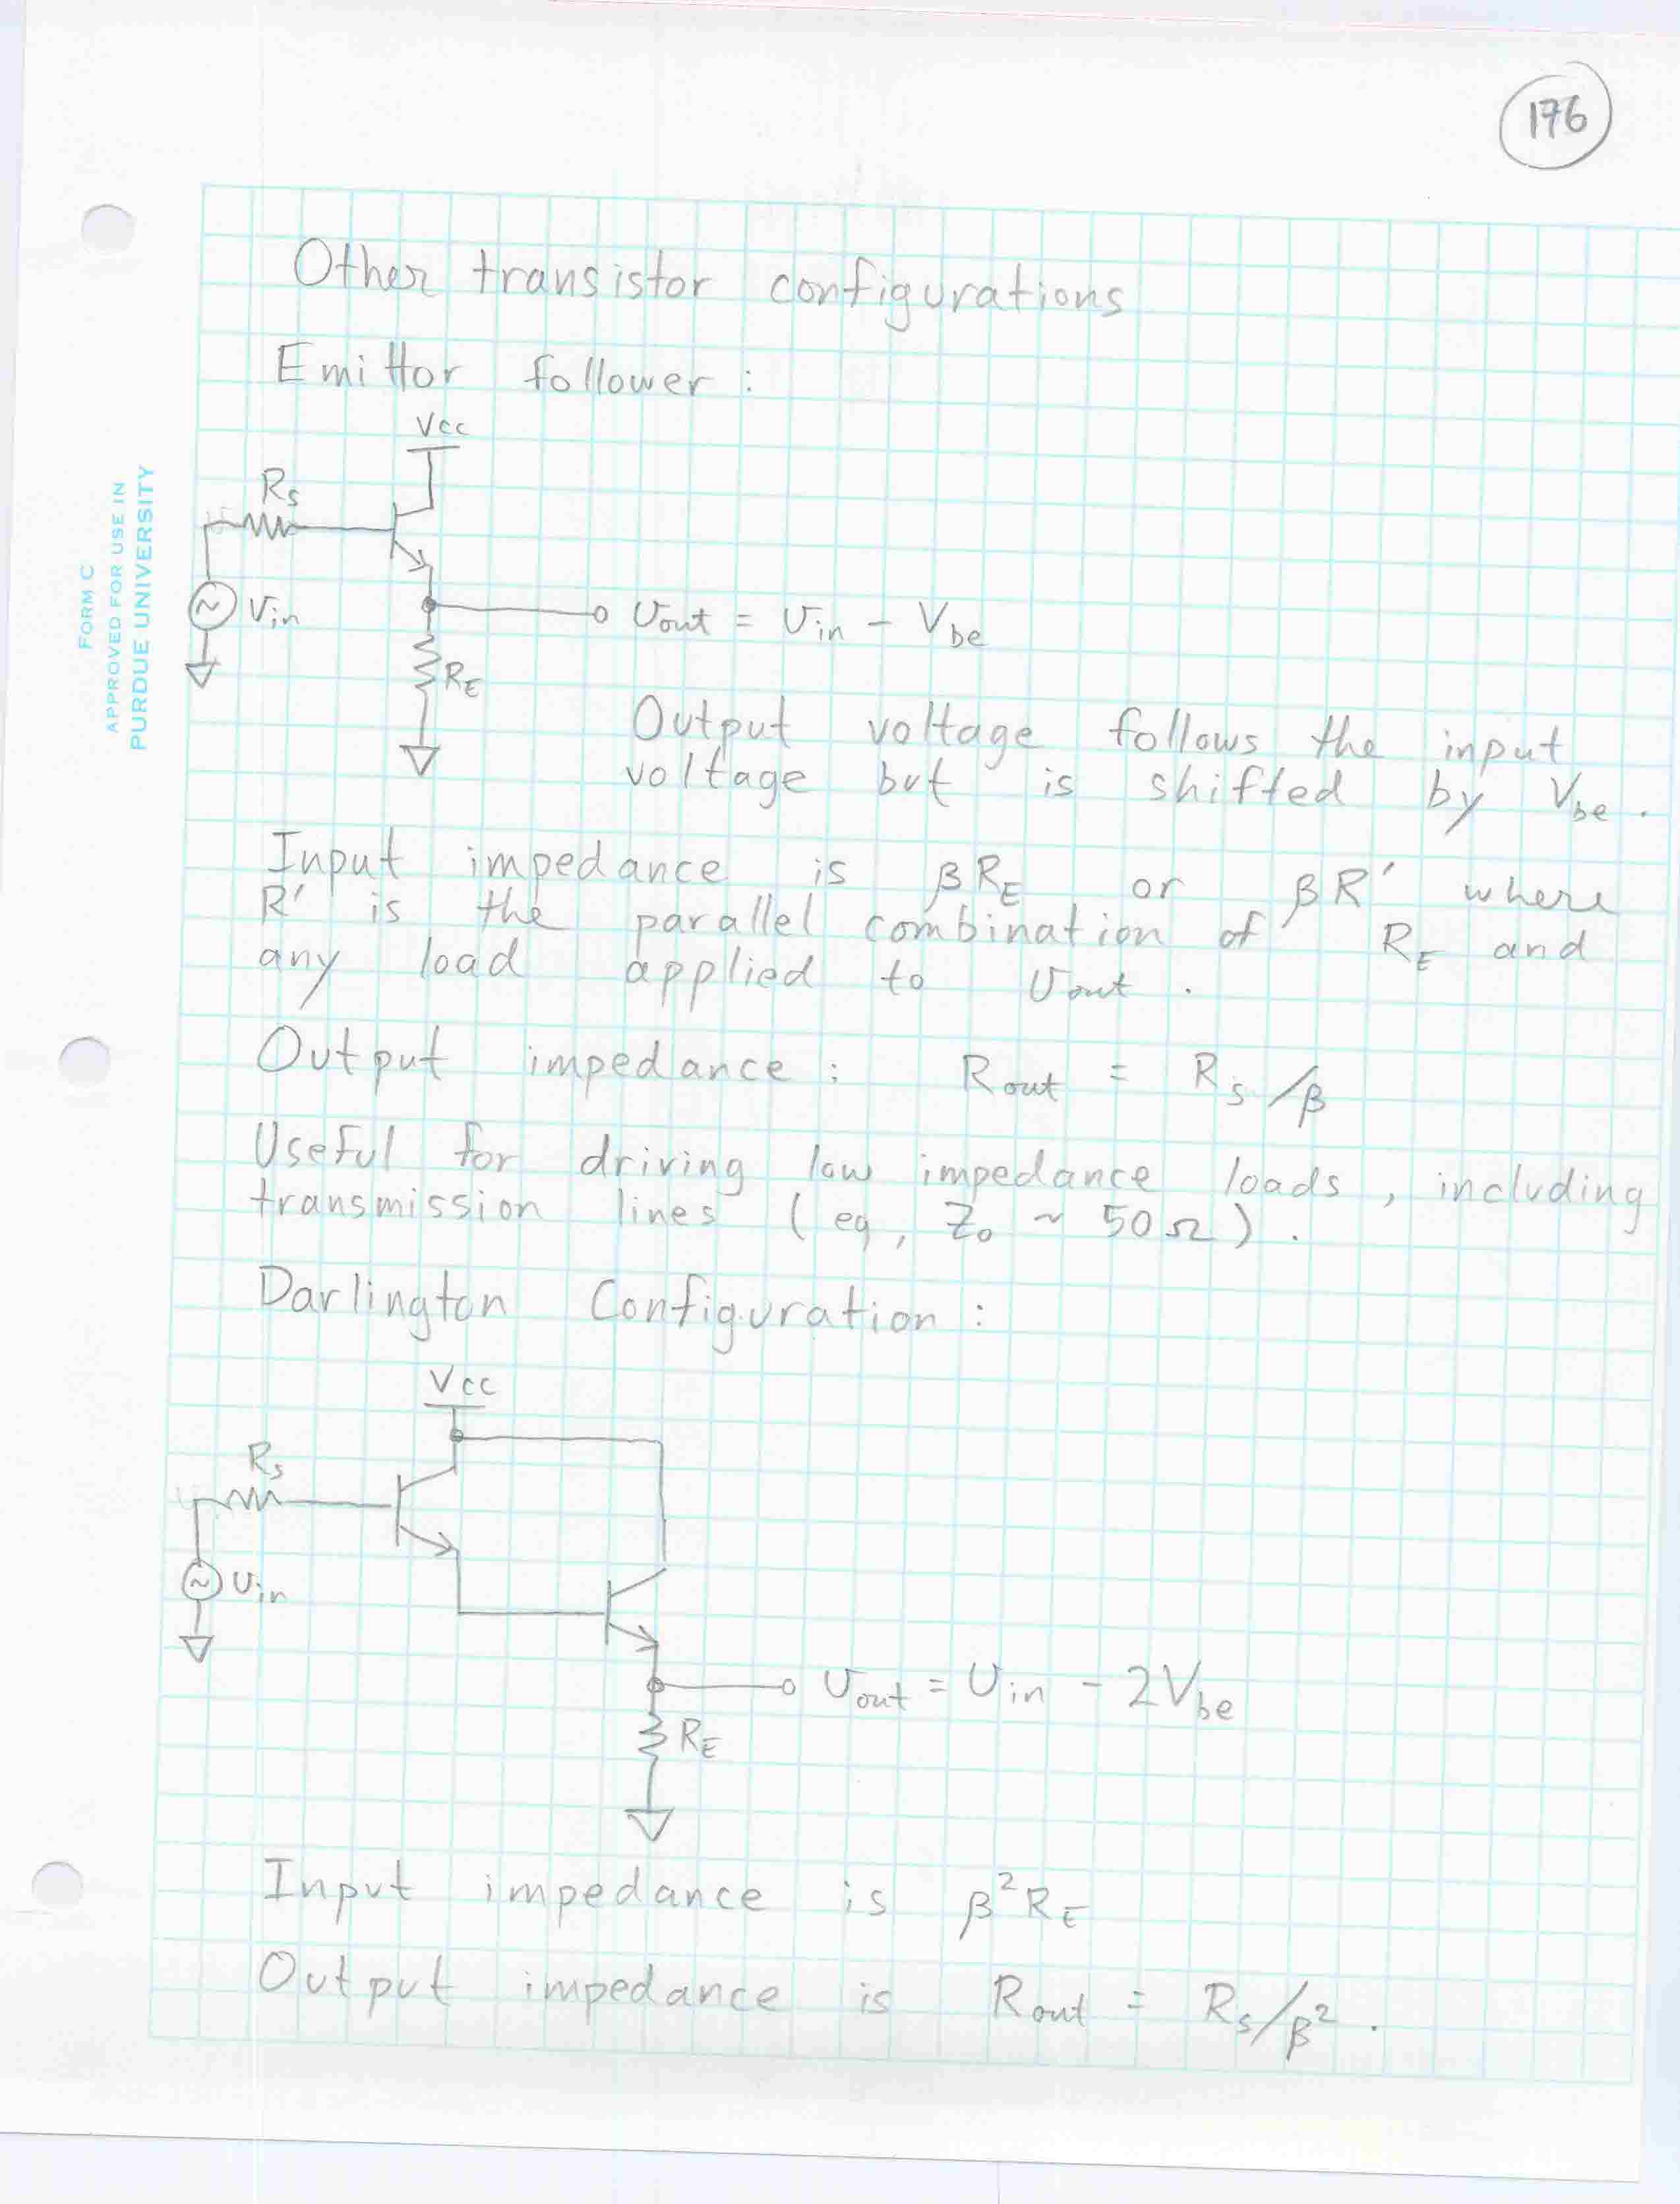 176
Other transistor configurations
Emittor follower :
Vcc
Rs
Vin
Vout = Vin - Vbe
RE
Output voltage follows the input
voltage but is shifted by Vbe .
Input impedance is βRE or βR' where
R' is the parallel combination of RE and
any load applied to Vout .
Output impedance : Rout = Rs/β
Useful for driving low impedance loads , including
transmission lines ( eg, Zo ~ 50Ω ) .
Darlington Configuration :
Vcc
Rs
Vin
Vout = Vin - 2Vbe
RE
Input impedance is β²RE
Output impedance is Rout = Rs/β² .
FORM C
APPROVED FOR USE IN
PURDUE UNIVERSITY